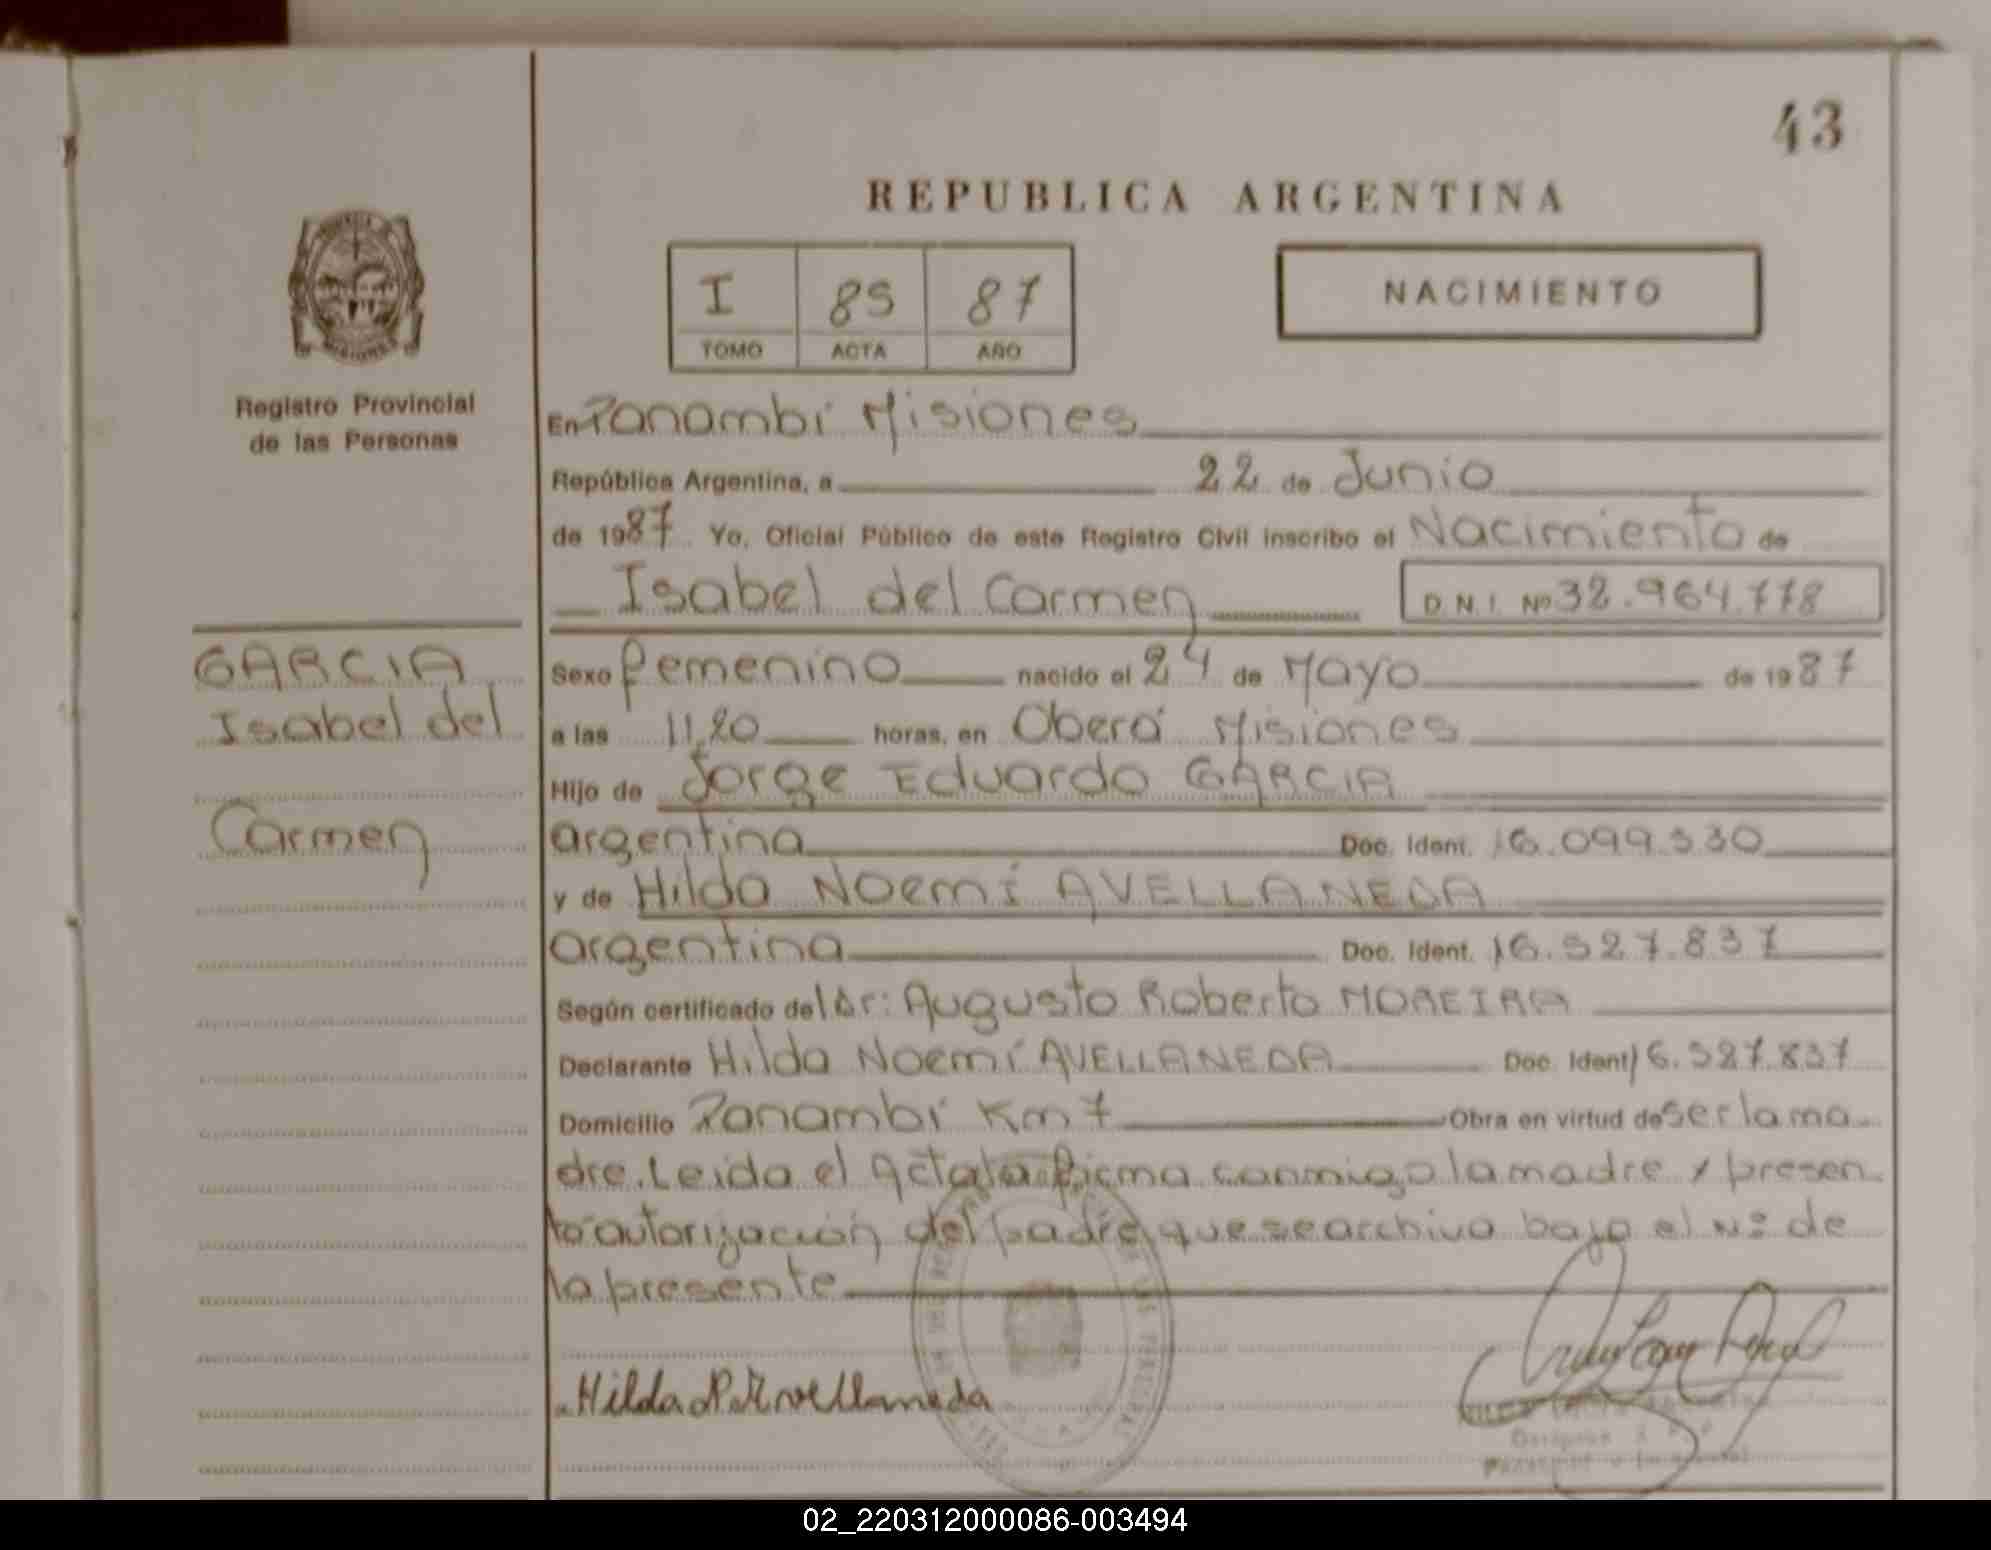 43
REPUBLICA ARGENTINA
I 85 87
TOMO ACTA AÑO
NACIMIENTO
Registro Provincial
de las Personas
En Panambí Misiones
República Argentina, a 22 de Junio
de 1987 Yo, Oficial Público de este Registro Civil inscribo el Nacimiento de
Isabel del Carmen D.N.I. Nº 32.964.778
GARCIA
Isabel del
Carmen
Sexo femenino nacido el 24 de Mayo de 1987
a las 11,20 horas, en Oberá Misiones
Hijo de Jorge Eduardo GARCIA
argentina Doc. Ident. 16.099.330
y de Hilda Noemí AVELLANEDA
argentina Doc. Ident. 16.527.837
Según certificado del Dr: Augusto Roberto MOREIRA
Declarante Hilda Noemí AVELLANEDA Doc. Ident 16.527.837
Domicilio Panambí Km 7 Obra en virtud de ser la ma
dre. Leida el Acta la firma conmigo la madre y presen
tó autorización del padre que se archiva bajo el Nº de
la presente
Hilda N. Avellaneda
02_220312000086-003494